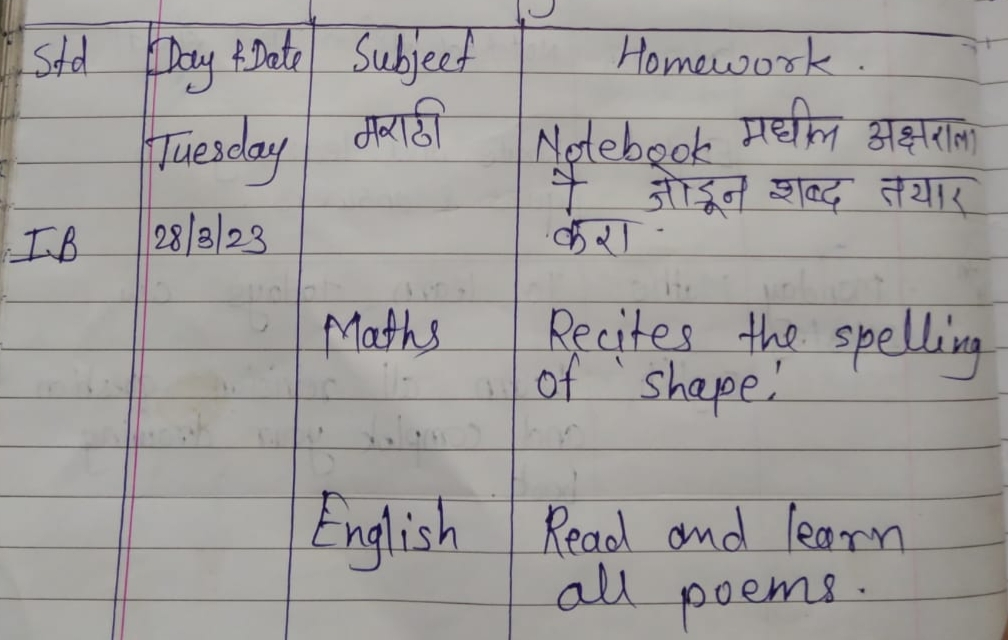 Std Day & Date Subject Homework.
Tuesday मराठी Notebook मधील अक्षराला
जोडून शब्द तयार
I B 28/3/23 करा.
Maths Recites the spelling
of 'shape'.
English Read and learn
all poems.